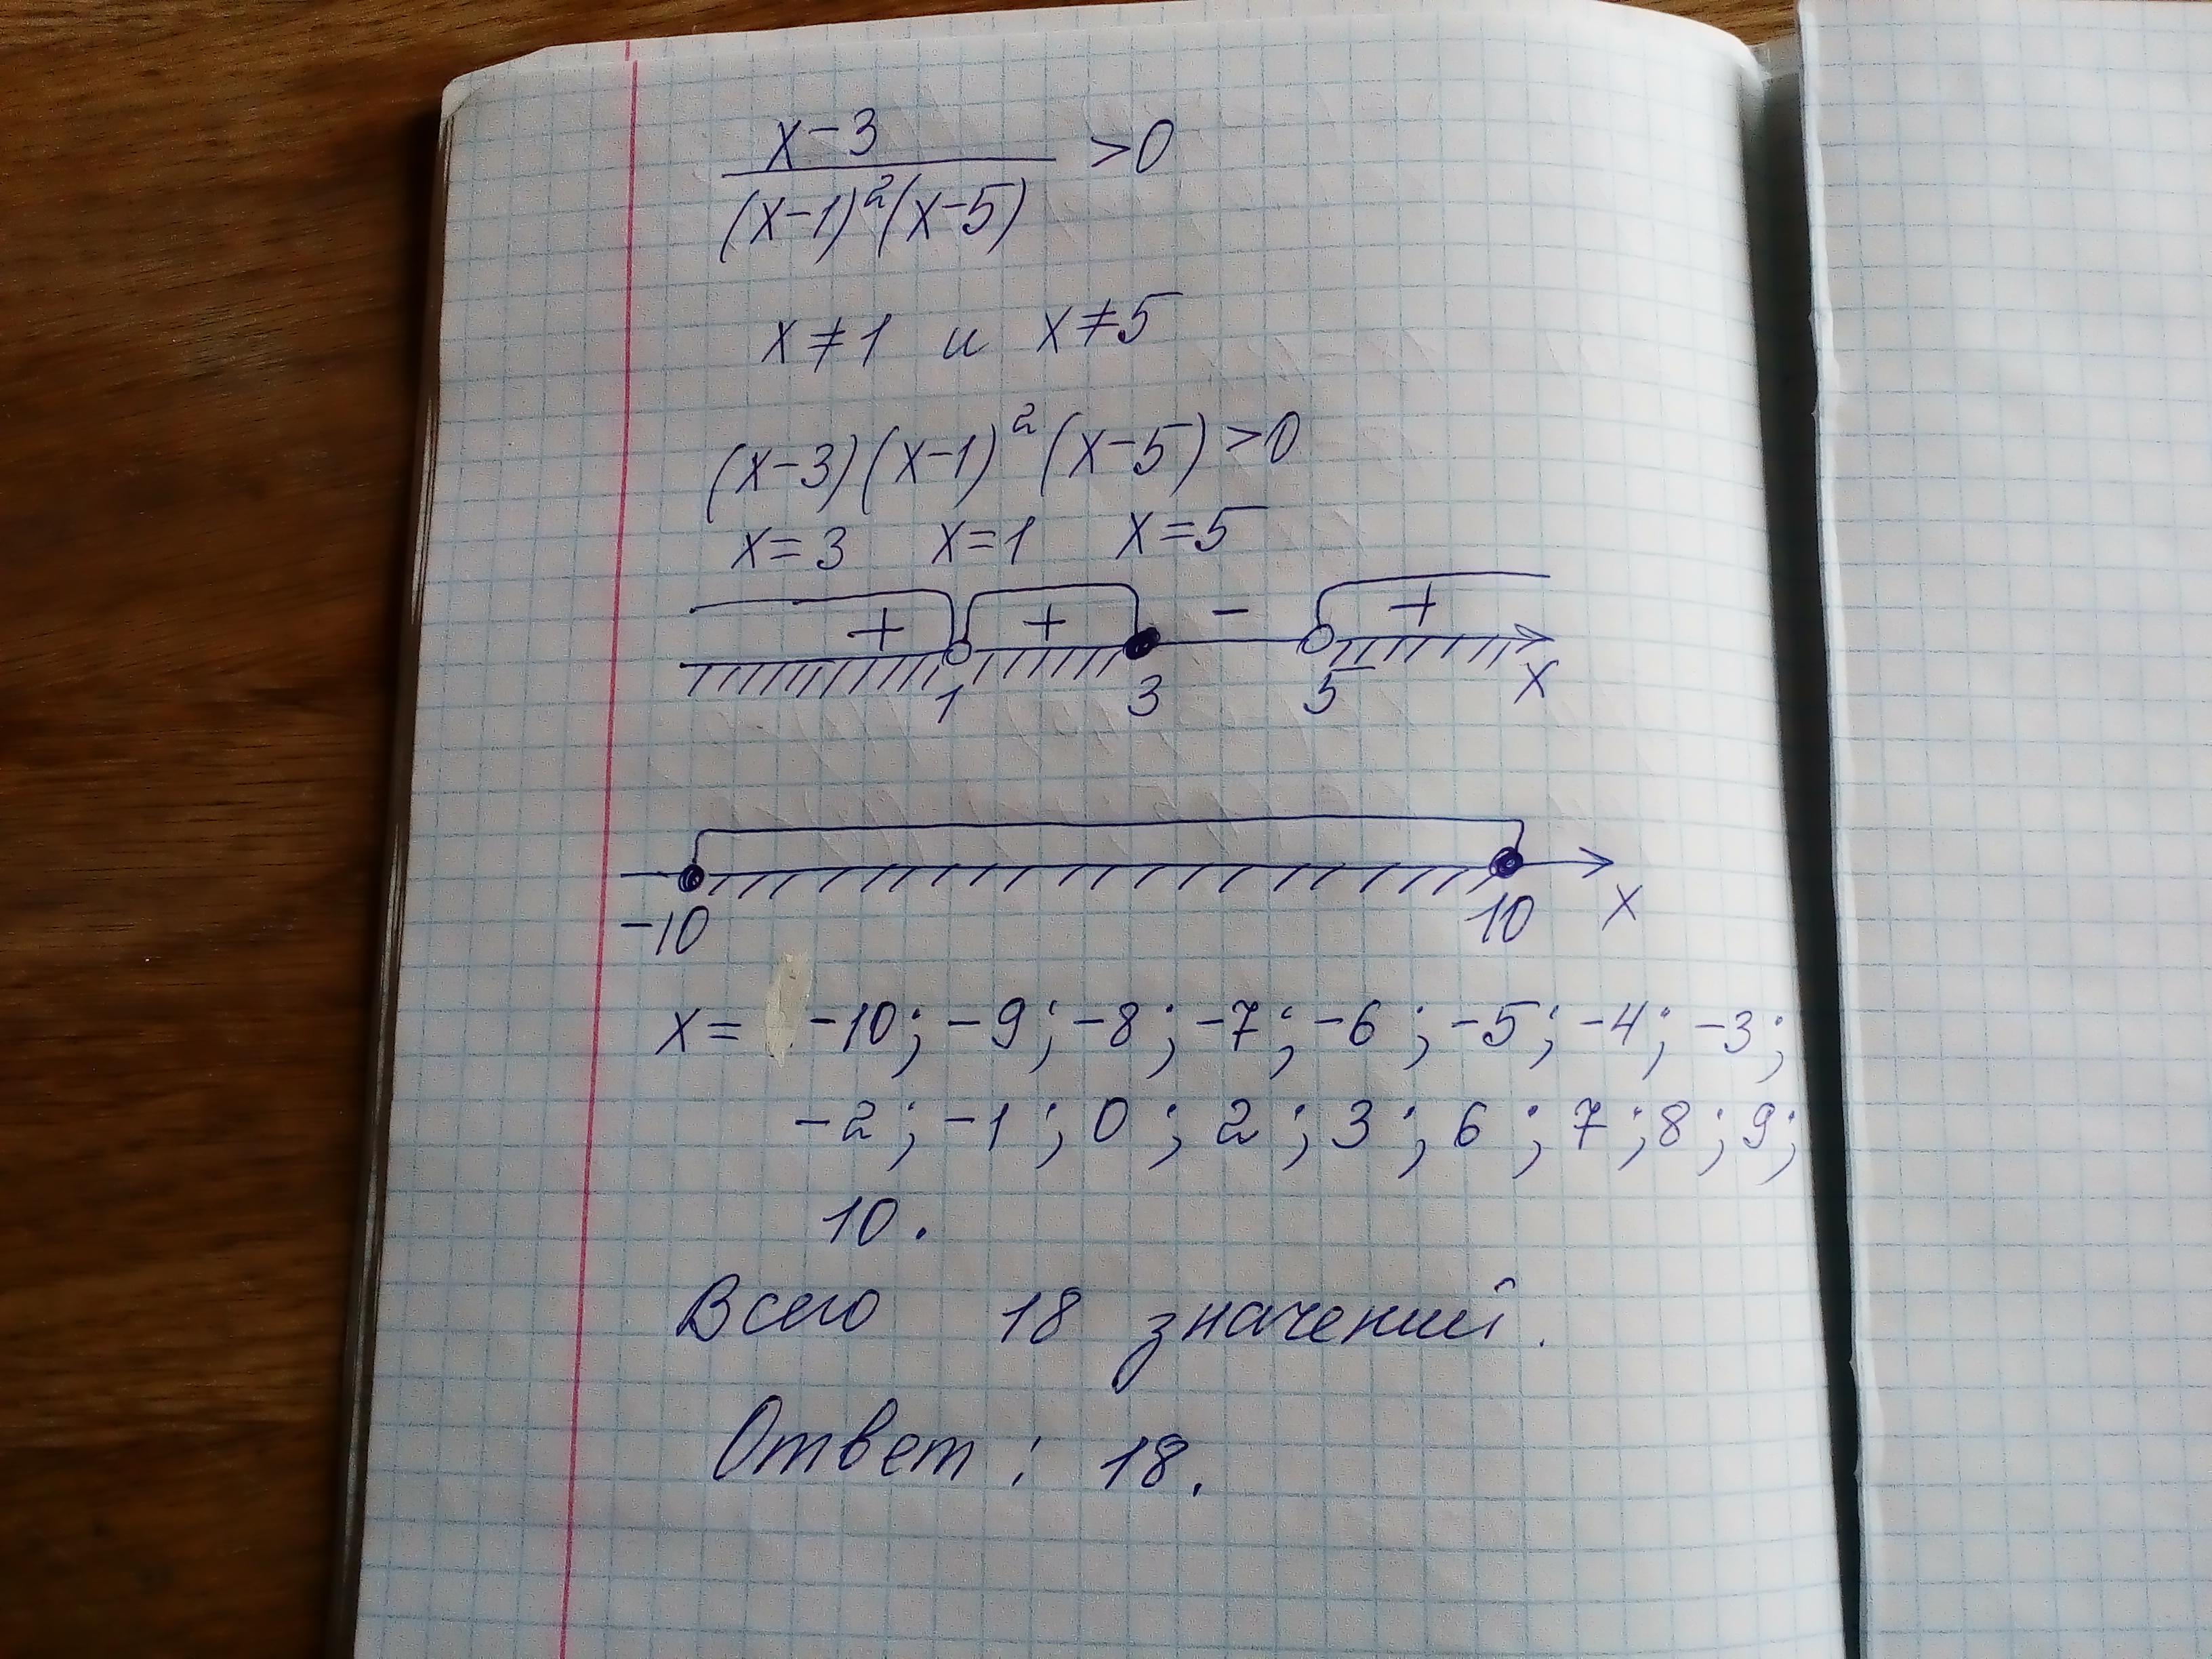 x-3
>0
(x-1)²(x-5)
x≠1 и x≠5
(x-3)(x-1)²(x-5)>0
x=3 x=1 x=5
+ + - +
1 3 5 x
-10 10 x
x= -10; -9; -8; -7; -6; -5; -4; -3;
-2; -1; 0; 2; 3; 6; 7; 8; 9;
10.
Всего 18 значений.
Ответ: 18.